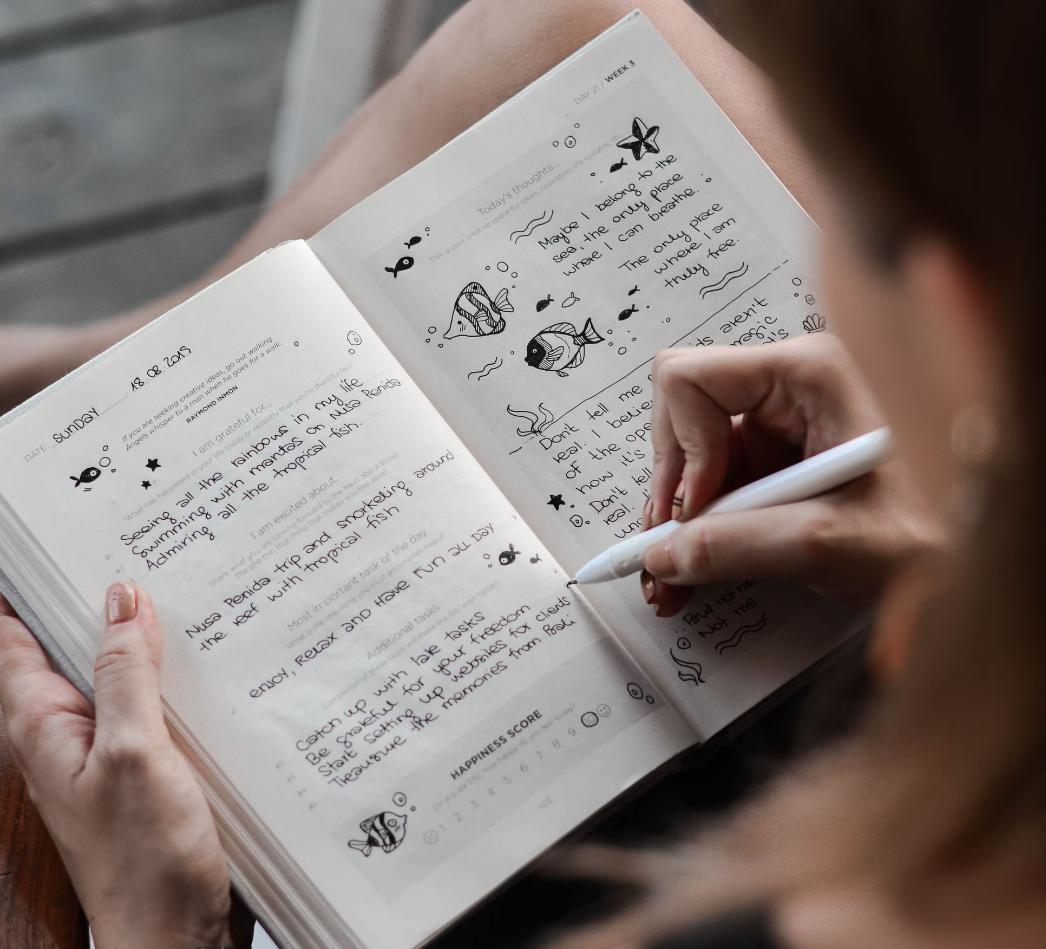 DATE: Sunday 18.08.2019
If you are seeking creative ideas, go out walking.
Angels whisper to a man when he goes for a walk.
RAYMOND INMON
I am grateful for...
What happened in your life today or recently that you're thankful for?
#1 Seeing all the rainbows in my life
#2 Swimming with mantas on Nusa Penida
Admiring all the tropical fish.
I am excited about...
Share what you are looking forward to the most about today
Nusa Penida trip and snorkeling around
the reef with tropical fish
Most important task of the day
enjoy, relax and have fun all day
Additional tasks
Catch up with late tasks
#2 Be grateful for your freedom
#3 Start setting up websites for clients
#4 Treasure the memories from Bali
#5
HAPPINESS SCORE
On a scale 1-10, how happy do you feel today?
1 2 3 4 5 6 7 8 9
102
DAY 21 / WEEK 3
Today's thoughts...
This is your creative space for ideas, inspirations, life updates,
Maybe I belong to the
sea, the only place
where I can breathe.
The only place
where I am
truly free.
aren't
magic
Don't tell me
real. I
of the
how it's
Don't tell
real.
But not me.
Not me.